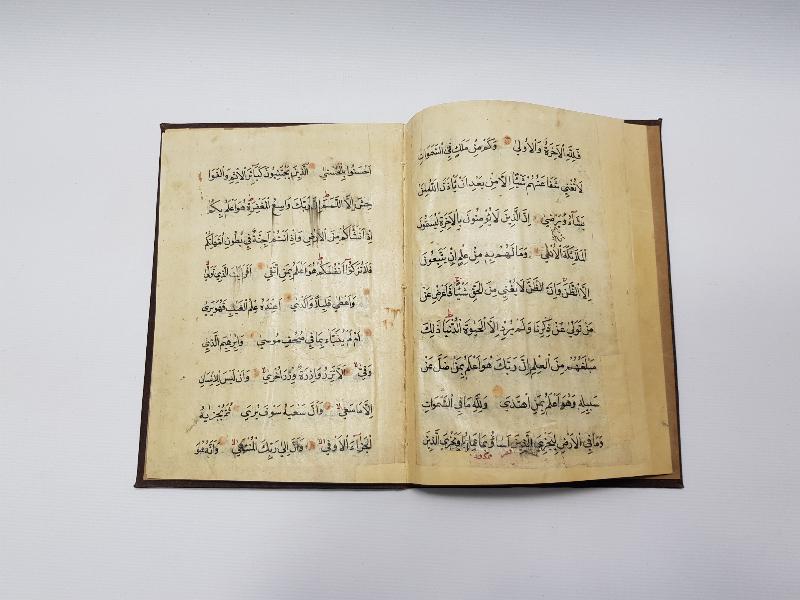 فَلِلّٰهِ الْاٰخِرَةُ وَالْاُولٰى وَكَمْ مِنْ مَلَكٍ فِي السَّمٰوَاتِ
لَا تُغْنِي شَفَاعَتُهُمْ شَيْئًا اِلَّا مِنْ بَعْدِ اَنْ يَأْذَنَ اللّٰهُ لِمَنْ
يَشَاءُ وَيَرْضٰى اِنَّ الَّذِينَ لَا يُؤْمِنُونَ بِالْاٰخِرَةِ لَيُسَمُّونَ
الْمَلٰئِكَةَ الْاُنْثٰى وَمَا لَهُمْ بِهِ مِنْ عِلْمٍ اِنْ يَتَّبِعُونَ
اِلَّا الظَّنَّ وَاِنَّ الظَّنَّ لَا يُغْنِي مِنَ الْحَقِّ شَيْئًا فَاَعْرِضْ عَنْ
مَنْ تَوَلّٰى عَنْ ذِكْرِنَا وَلَمْ يُرِدْ اِلَّا الْحَيٰوةَ الدُّنْيَا ذٰلِكَ
مَبْلَغُهُمْ مِنَ الْعِلْمِ اِنَّ رَبَّكَ هُوَ اَعْلَمُ بِمَنْ ضَلَّ عَنْ
سَبِيلِهِ وَهُوَ اَعْلَمُ بِمَنِ اهْتَدٰى وَلِلّٰهِ مَا فِي السَّمٰوَاتِ
وَمَا فِي الْاَرْضِ لِيَجْزِيَ الَّذِينَ اَسَاؤُا بِمَا عَمِلُوا وَيَجْزِيَ الَّذِينَ
اَحْسَنُوا بِالْحُسْنٰى الَّذِينَ يَجْتَنِبُونَ كَبَائِرَ الْاِثْمِ وَالْفَوَا
حِشَ اِلَّا اللَّمَمَ اِنَّ رَبَّكَ وَاسِعُ الْمَغْفِرَةِ هُوَ اَعْلَمُ بِكُمْ
اِذْ اَنْشَأَكُمْ مِنَ الْاَرْضِ وَاِذْ اَنْتُمْ اَجِنَّةٌ فِي بُطُونِ اُمَّهَاتِكُمْ
فَلَا تُزَكُّوا اَنْفُسَكُمْ هُوَ اَعْلَمُ بِمَنِ اتَّقٰى اَفَرَاَيْتَ الَّذِي تَوَلّٰى
وَاَعْطٰى قَلِيلًا وَاَكْدٰى اَعِنْدَهُ عِلْمُ الْغَيْبِ فَهُوَ يَرٰى
اَمْ لَمْ يُنَبَّأْ بِمَا فِي صُحُفِ مُوسٰى وَاِبْرٰهِيمَ الَّذِي
وَفّٰى اَلَّا تَزِرُ وَازِرَةٌ وِزْرَ اُخْرٰى وَاَنْ لَيْسَ لِلْاِنْسَانِ
اِلَّا مَا سَعٰى وَاَنَّ سَعْيَهُ سَوْفَ يُرٰى ثُمَّ يُجْزٰيهُ
الْجَزَاءَ الْاَوْفٰى وَاَنَّ اِلٰى رَبِّكَ الْمُنْتَهٰى وَاَنَّهُ هُوَ